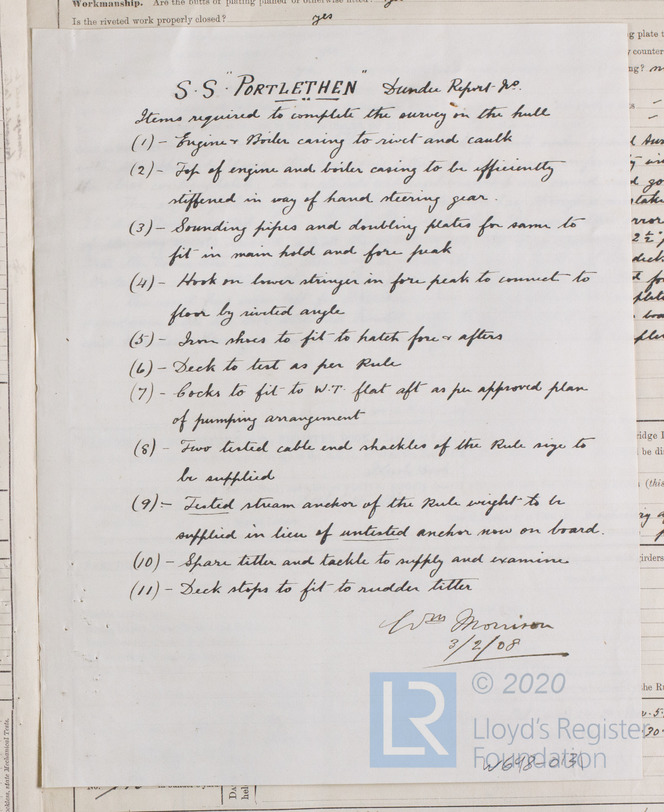 Workmanship. Are the butts of plating planed or otherwise fitted? yes
Is the riveted work properly closed? yes
S.S. "PORTLETHEN" Dundee Report No.
Items required to complete the survey on the hull
(1) - Engine & Boiler casing to rivet and caulk
(2) - Top of engine and boiler casing to be efficiently
stiffened in way of hand steering gear.
(3) - Sounding pipes and doubling plates for same to
fit in main hold and fore peak
(4) - Hook on lower stringer in fore peak to connect to
floor by riveted angle
(5) - Iron shoes to fit to hatch fore & afters
(6) - Deck to test as per Rule
(7) - Cocks to fit to W.T. flat aft as per approved plan
of pumping arrangement
(8) - Two tested cable end shackles of the Rule size to
be supplied
(9) - Tested stream anchor of the Rule weight to be
supplied in lieu of untested anchor now on board.
(10) - Spare tiller and tackle to supply and examine
(11) - Deck stops to fit to rudder tiller
Wm Morrison
3/2/08
LR © 2020
Lloyd's Register
Foundation
W648-0131